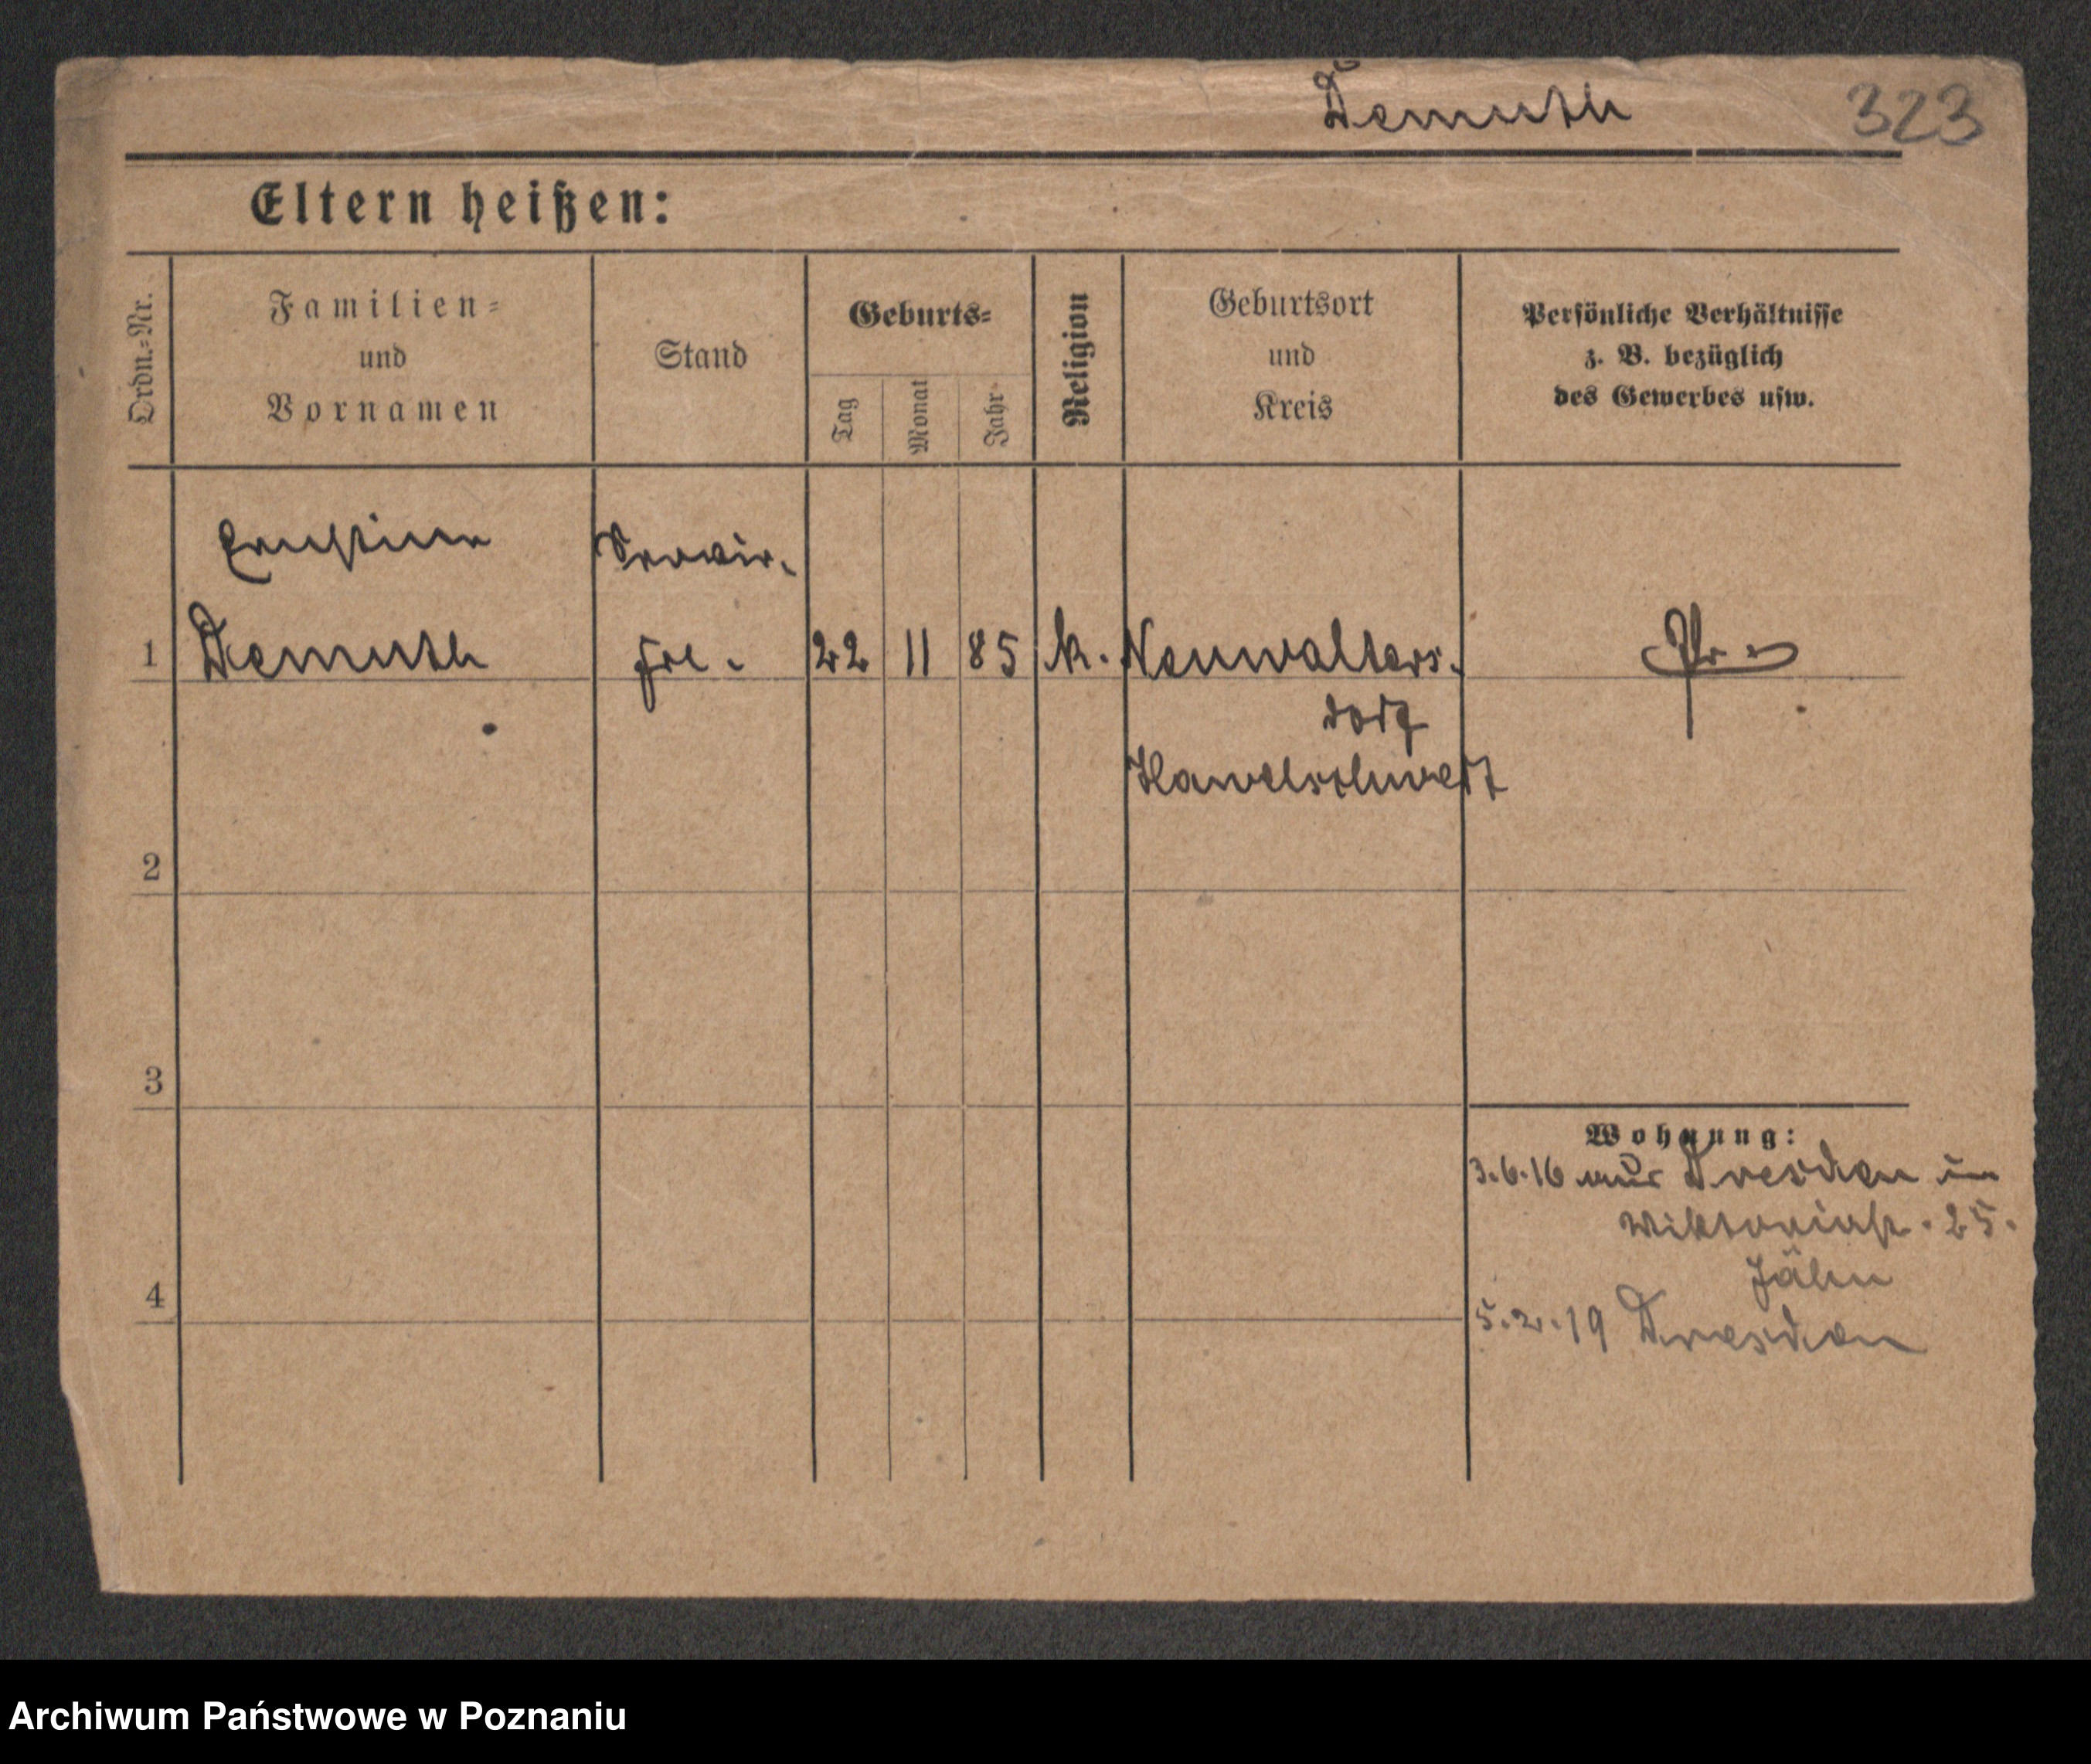 Demuth 323
Eltern heißen:
Ordn.=Nr.
Familien=
und
Vornamen
Stand
Geburts=
Tag
Monat
Jahr
Religion
Geburtsort
und
Kreis
Persönliche Verhältnisse
z. B. bezüglich
des Gewerbes usw.
Ernstine
1 Demuth 22 11 85 k. Neuwalters-
dorf
Hawelschwert
2
3
Wohnung:
3.6.16 aus Dresden in
Viktoriastr. 25.
Jähn
4
5.2.19 Dresden
Archiwum Państwowe w Poznaniu